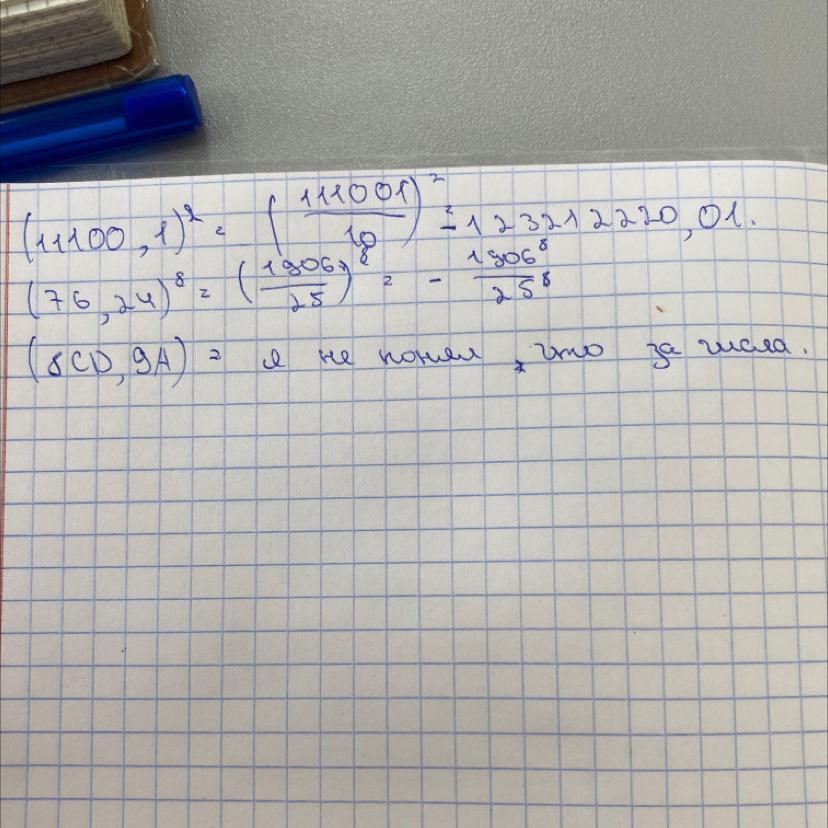 (11100,1)² = (111001/10)² = 123212220,01.
(76,24)⁸ = (1906/25)⁸ = - 1906⁸/25⁸
(8CD,9A) = я не понял, что за числа.